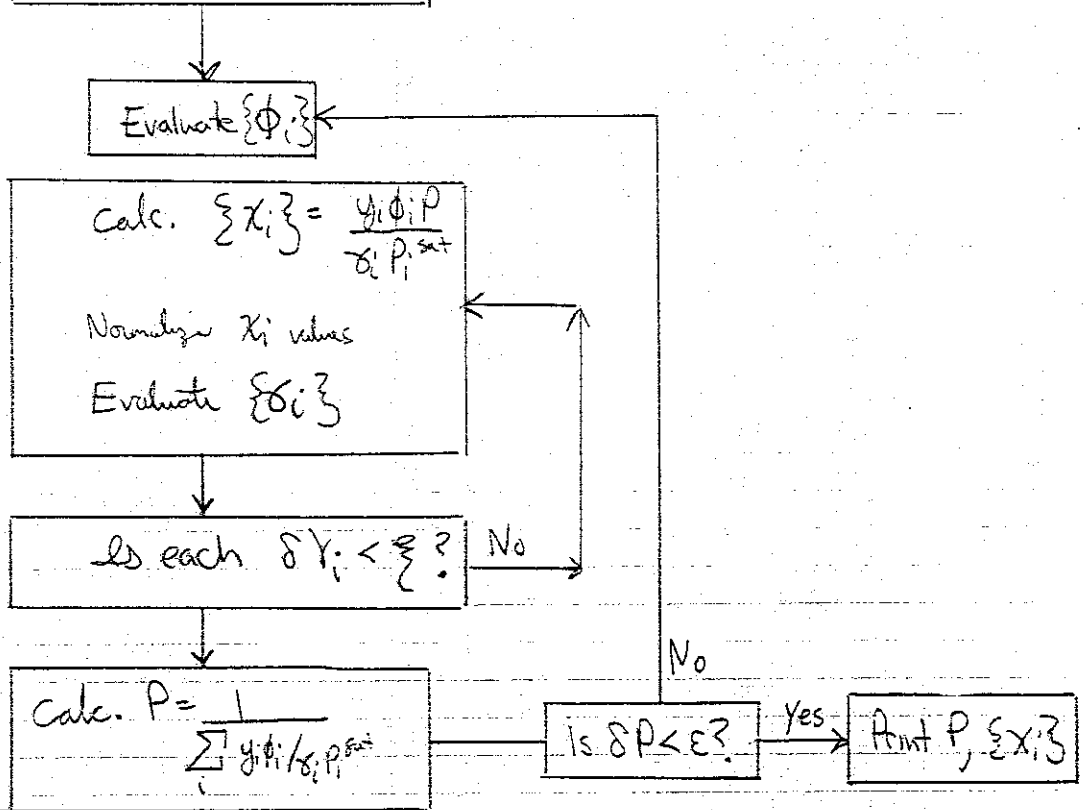 Evaluate {ϕᵢ}
Calc. {xᵢ} = yᵢϕᵢP / γᵢPᵢˢᵃᵗ
Normalize xᵢ values
Evaluate {γᵢ}
Is each δγᵢ < ξ ?
No
Calc. P = 1 / ∑ᵢ yᵢϕᵢ/γᵢPᵢˢᵃᵗ
is δP<ε?
No
Yes
Print P, {xᵢ}